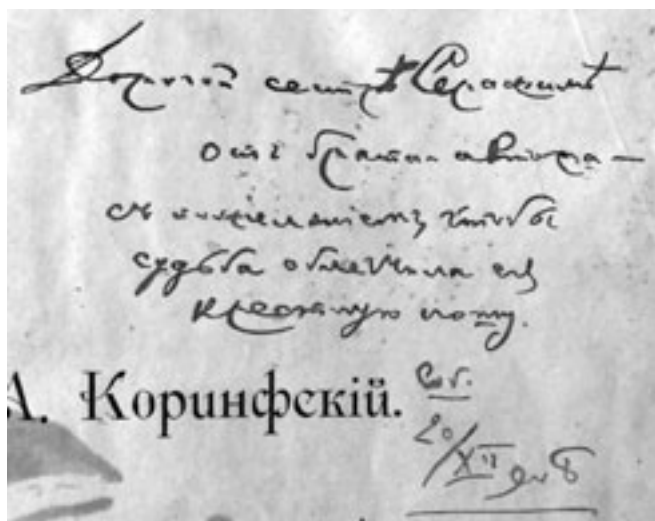 Дорогой сестрѣ Серафимѣ
отъ брата-автора —
съ пожеланіемъ чтобы
судьба облегчила ей
крестную ношу.
А. Коринфскій.
20/XII